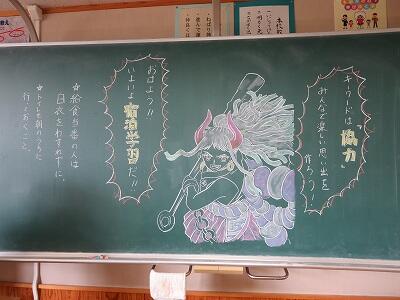 キーワードは「協力」
みんなで楽しい思い出を
作ろう!
おはよう!!
いよいよ宿泊学習だ!!
★給食当番の人は
白衣をわすれずに。
★トイレを朝のうちに
行っておくこと。